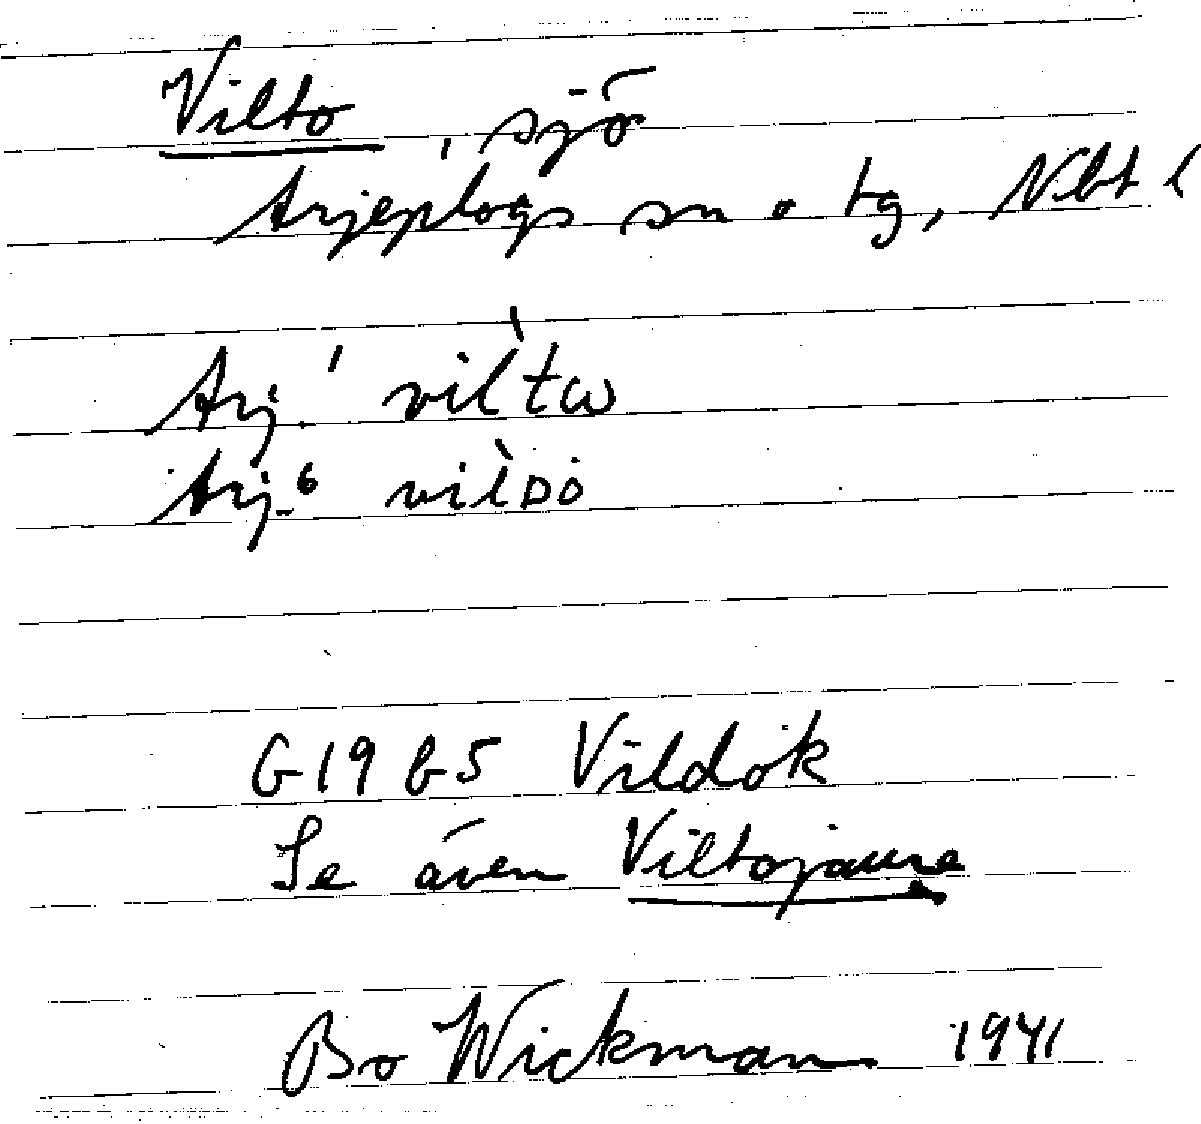 Vilto, sjö
Arjeplogs sn o tg, Nbt l
Arj.¹ vil̀tω
Arj.⁶ vil̀ᴅȯ
G19 b5 Vildok
Se även Viltojaure
Bo Wickman 1941